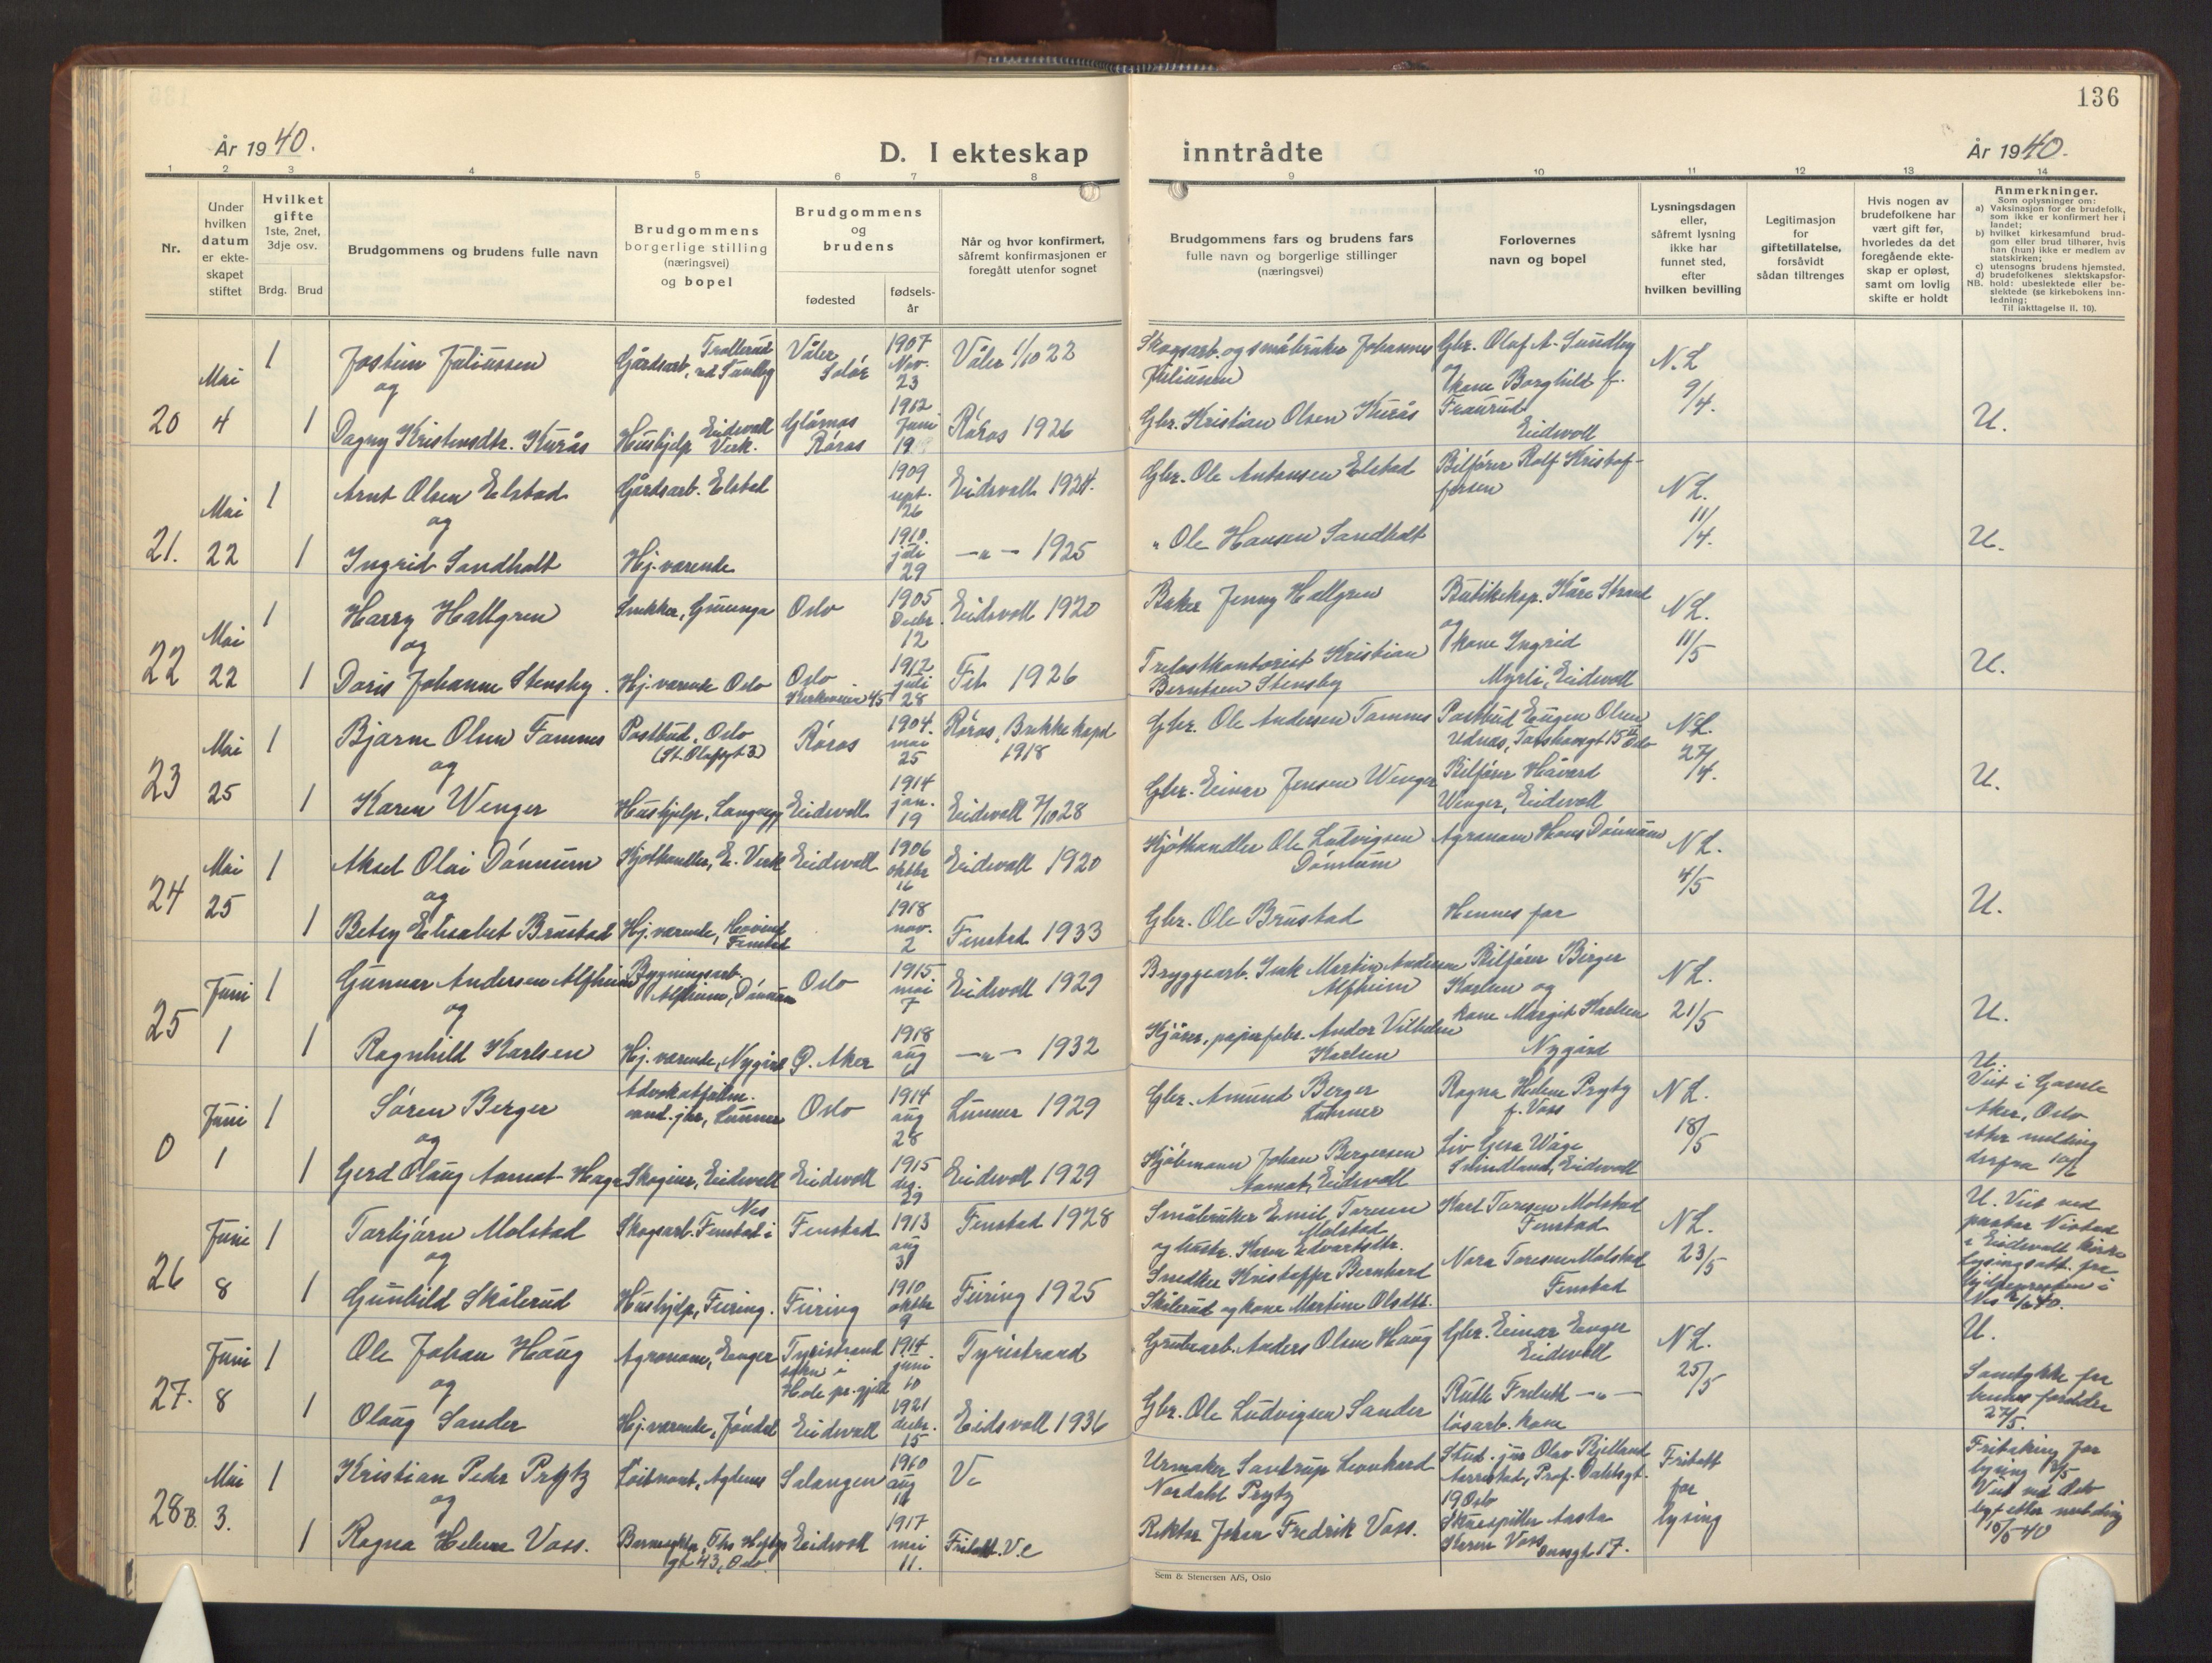 136
År 1940.
D. I ekteskap inntrådte
År 1940.
1 2 3 4 5 6 7 8 9 10 11 12 13 14
Nr.
Under hvilken datum er ekteskapet stiftet
Hvilket gifte 1ste, 2net, 3dje osv.
Brdg. Brud
Brudgommens og brudens fulle navn
Brudgommens borgerlige stilling (næringsvei) og bopel
Brudgommens og brudens
fødested
fødselsår
Når og hvor konfirmert, såfremt konfirmasjonen er foregått utenfor sognet
Brudgommens fars og brudens fars fulle navn og borgerlige stillinger (næringsvei)
Forlovernes navn og bopel
Lysningsdagen eller, såfremt lysning ikke har funnet sted, efter hvilken bevilling
Legitimasjon for giftetillatelse, forsåvidt sådan tiltrenges
Hvis nogen av brudefolkene har vært gift før, hvorledes da det foregående ekteskap er opløst, samt om lovlig skifte er holdt
Anmerkninger.
Som oplysninger om:
a) Vaksinasjon for de brudefolk, som ikke er konfirmert her i landet;
b) hvilket kirkesamfund brudgom eller brud tilhører, hvis han (hun) ikke er medlem av statskirken;
c) utensogns brudens hjemsted.
d) brudefolkenes slektskapsforhold: ubeslektede eller beslektede (se kirkebokens innledning;
NB.
Til iakttagelse II. 10).
20 Mai 4
1 Jostein Juliussen
og
1 Dagny Kristensdtr. Kurås
Gårdsarb., Trollerud
Hushjelp Eidsvoll Verk.
Våler Solør 1907 Nov. 23 Våler 1/10 22
Glåmos Røros 1912 Juni 19 Røros 1926
Skogsarb. og småbruker Johannes Juliussen
Gbr. Kristian Olsen Kurås
Gbr. Olaf A. Sundby
og
kone Borghild f.
Eidsvoll
N.L 9/4.
U.
21. Mai 22
1 Arnt Olsen Elstad
og
1 Ingrid Sandholt
Gårdsarb. Elstad
Hj. værende
1909 sept. 26 Eidsvoll 1924.
1910. juli 29 -"- 1925
Gbr. Ole Antonsen Elstad
" Ole Hansen Sandholt
Bilfører Rolf Kristoffersen
N L. 11/4.
U.
22 Mai 22
1 Harry Hallgren
og
1 Doris Johanne Stensby.
Oslo 1905 Decbr. 12 Eidsvoll 1920
Hj. værende Oslo
Oslo Kirkeveien 45 1912 juli 28 Fet 1926
Baker Jenny Hallgren
Trelastkontorist Kristian Berntsen Stensby
Butikeksp. Kåre Strand
og
kone Ingrid
Myrli, Eidsvoll
N L. 11/5
U.
23 Mai 25
1 Bjarne Olsen Tamnes
og
1 Karen Wenger
Postbud, Oslo (St. Olafsgt 3)
Hushjelp, Langvegg
Røros 1904. mai 25 Røros, Brekke kapel 1918
Eidsvoll 1914 jan. 19 Eidsvoll 7/10 28
Gbr. Ole Andersen Tamnes
Gbr. Einar Jensen Wenger
Postbud Eugen Olsen
Udnæs, Torshovsgt 15 II Oslo
Bilfører Håvard
Wenger, Eidsvoll
N L. 27/4.
U.
24 Mai 25
1 Aksel Olai Dønnum
og
1 Betsy Elisabet Brustad
Kjøthandler, E. Verk
Hj. værende, Hovind Fenstad
Eidsvoll 1906 oktbr 16 Eidsvoll 1920
1918 nov. 2 Fenstad 1933
Kjøthandler Ole Ludvigsen Dønnum
Gbr. Ole Brustad
Agronom Hans Dønnum
Hennes far
N L. 4/5
U.
25 Juni 1
1 Gunnar Andersen Alfheim
og
1 Ragnhild Karlsen
Bygningsarb. Alfheim, Dønnum
Hj. værende, Nygård
Oslo 1915 mai 7 Eidsvoll 1929
Ø. Aker 1918 aug 6 -"- 1932
Bryggearb. Isak Martin Andersen Alfheim
Kjører, papirfabr. Andor Vilhelm Karlsen
Bilfører Birger
Karlsen og
kone Margit Karlsen
Nygård
N L. 21/5
U.
0 Juni 1
1 Søren Berger
og
1 Gerd Olaug Aamot-Haga
Advokatfullm. cand. jur, Lunner
Skogien, Eidsvoll
Oslo 1914 aug 28 Lunner 1929
Eidsvoll 1915 des. 29 Eidsvoll 1929
Gbr. Amund Berger
Lunner
Kjøbmann Johan Bergersen
Aamot, Eidsvoll
Ragna Helene Prytz
f. Voss
Liv Gera Wåge
Svindland, Eidsvoll
N L. 18/5
U.
Viet i Gamle
Aker, Oslo
etter melding
derfra 10/6
26 Juni 8
1 Torbjørn Molstad
og
1 Gunhild Skålerud
Skogsarb. Fenstad i Nes
Hushjelp, Feiring.
Fenstad 1913 aug 31 Fenstad 1928
Feiring 1910 oktbr 9 Feiring 1925
Småbruker Emil Toresen
Molstad
og hustr. Karen Edvartsdtr.
Snedker Kristoffer Bernhard
Skålerud og kone Martine Olsdtr.
Karl Toresen Molstad
Fenstad
Nora Toresen Molstad
Fenstad
N L. 23/5
U. Viet ved
pastor Vivstad
i Eidsvoll kirke
Lysingsatt. fra
hjelpepresten i
Nes 40.
27. Juni 8
1 Ole Johan Haug
og
1 Olaug Sander
Agronom, Enger
Hj. værende, Jøndal
Tyristrand sokn i Hole pr.gjeld 1914 juni 10 Tyristrand
Eidsvoll 1921 decbr. 15 Eidsvoll 1936
Grubearb. Anders Olsen Haug
Gbr. Ole Ludvigsen Sander
Gbr. Einar Enger
Eidsvoll
Ruth -"-
løsarb. kone
N L. 25/5
U.
Samtykke fra
hennes forelder
27/5.
28 B. Mai 3.
1 Kristian Peder Prytz
og
1 Ragna Helene Voss.
Løitnant,
Ths Heftyes gt 43, Oslo.
Salangen 1910 aug 14 Ve
Eidsvoll 1917 mai 11. Fritatt. V.e
Urmaker Santrup Leonhard
Nordahl Prytz
Rektor Johan Fredrik Voss.
Stud. jur Olav Bjelland
Aarrestad, Prof. Dahlsgt.
19 Oslo
Skuespiller Aasta
Karen Voss 17.
Fritatt
for
lysing
Fritaking for
lysing 2/5
Viet ved Oslo
byf. etter melding
10/5 40
Sem & Stenersen A/S, Oslo